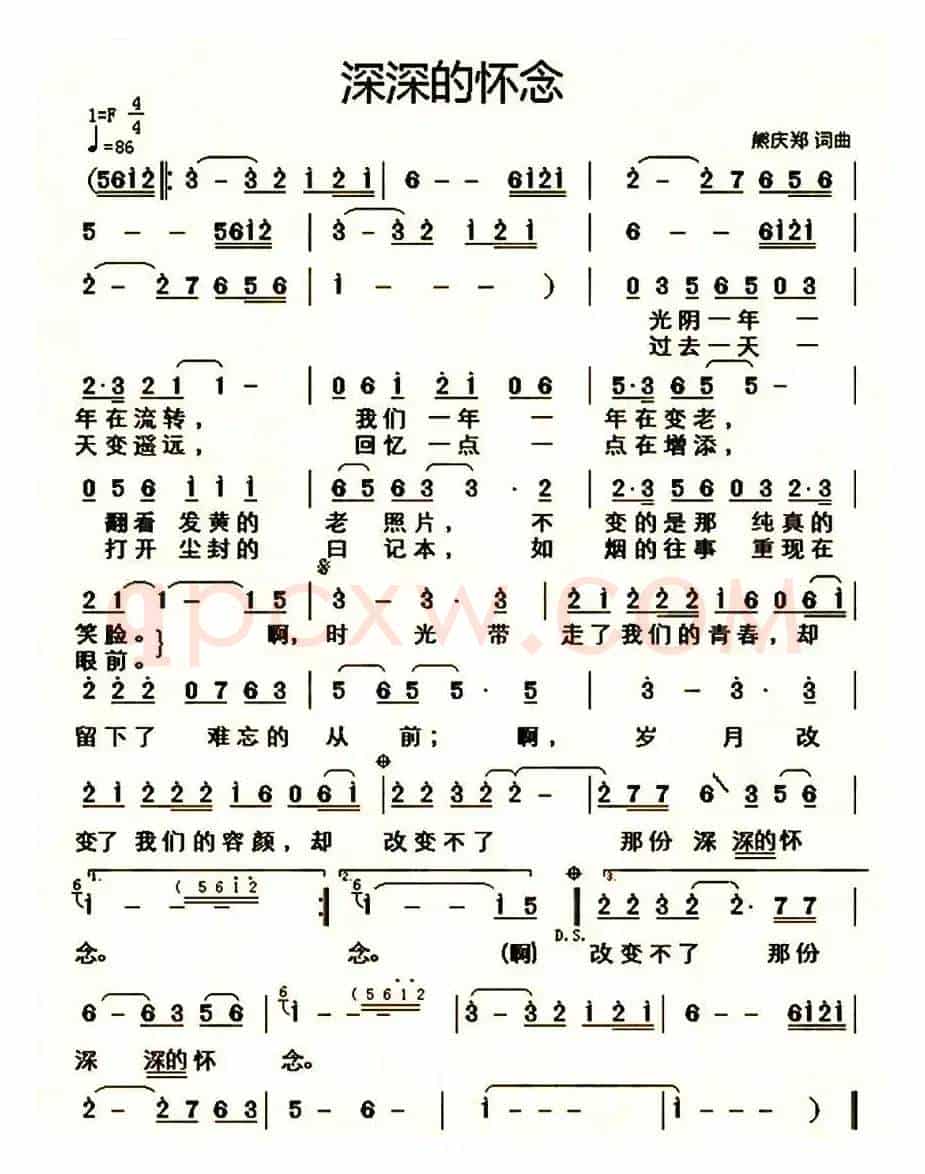 深深的怀念
1=F 4/4
♩=86
熊庆郑 词曲
(561̇2̇ ‖: 3̇ - 3̇ 2̇ 1̇ 2̇ 1̇ | 6 - - 61̇2̇1̇ | 2̇ - 2̇ 7 6 5 6 |
5 - - 561̇2̇ | 3̇ - 3̇ 2̇ 1̇ 2̇ 1̇ | 6 - - 61̇2̇1̇ |
2̇ - 2̇ 7 6 5 6 | 1̇ - - - ) | 0 3 5 6 5 0 3 |
光阴一年 一
过去一天 一
2·3 2 1 1 - | 0 6 1̇ 2̇ 1̇ 0 6 | 5·3 6 5 5 - |
年在流转, 我们 一年 一 年在变老,
天变遥远, 回忆 一点 一 点在增添,
0 5 6 1̇ 1̇ 1̇ | 6 5 6 3 3 · 2 | 2·3 5 6 0 3 2·3 |
翻看 发黄的 老 照片, 不 变的是那 纯真的
打开 尘封的 日 记本, 如 烟的往事 重现在
2 1 1 - 1 5 | 3̇ - 3̇ · 3̇ | 2̇ 1̇ 2̇ 2̇ 2̇ 1̇ 6 0 6 1̇ |
笑脸。} 啊, 时 光 带 走了我们的青春, 却
眼前。
qpcxw.com
2̇ 2̇ 2̇ 0 7 6 3 | 5 6 5 5 · 5 | 3̇ - 3̇ · 3̇ |
留下了 难忘的 从 前; 啊, 岁 月 改
2̇ 1̇ 2̇ 2̇ 2̇ 1̇ 6 0 6 1̇ | 2̇ 2̇ 3̇ 2̇ 2̇ - | 2̇ 7 7 6 3 5 6 |
变了 我们的容颜, 却 改变不了 那份 深 深的怀
1. 6 1̇ - - (5 6 1̇ 2̇ :‖ 2. 6 1̇ - - 1̇ 5 ‖ 3. 2̇ 2̇ 3̇ 2̇ 2̇· 7 7 |
D.S.
念。 念。 (啊) 改变不了 那份
6 - 6 3 5 6 | 6 1̇ - - (5 6 1̇ 2̇ | 3̇ - 3̇ 2̇ 1̇ 2̇ 1̇ | 6 - - 61̇2̇1̇ |
深 深的怀 念。
2̇ - 2̇ 7 6 3 | 5 - 6 - | 1̇ - - - | 1̇ - - ) ‖